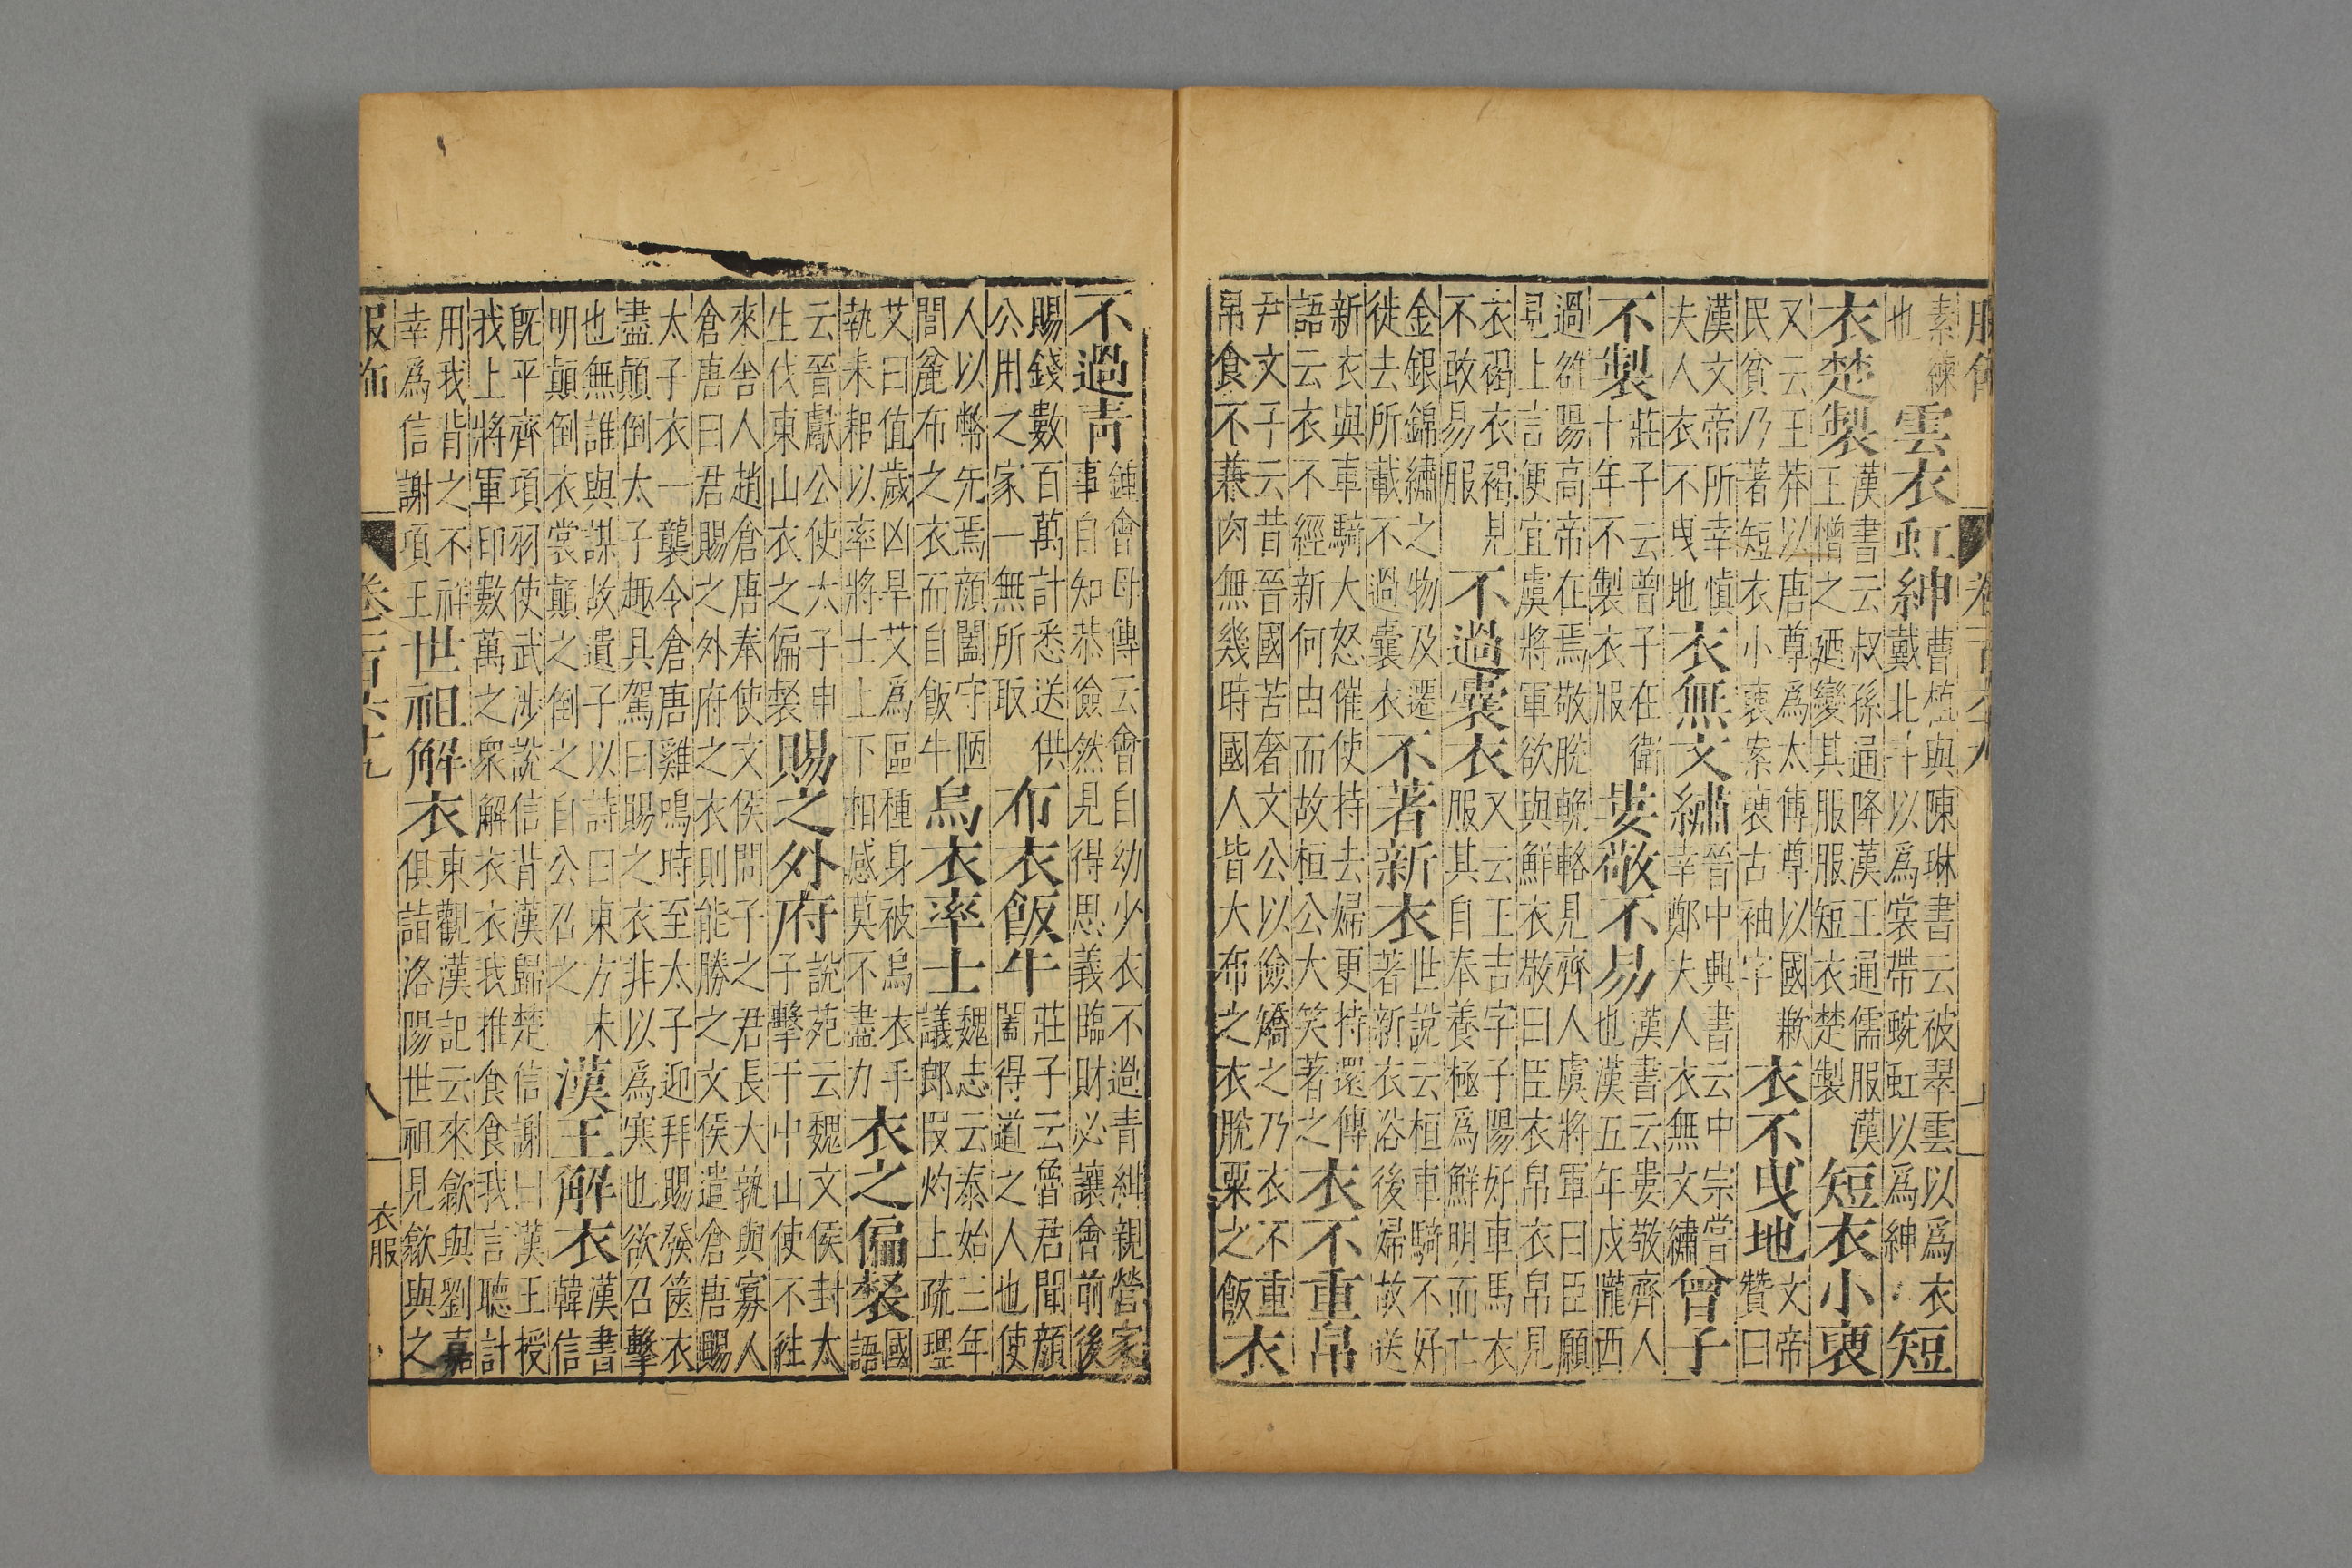 素練也雲衣虹紳曹植與陳琳書云被翠雲以爲衣戴北斗以爲裳帶蜿虹以爲紳短
衣楚製漢書云叔孫通降漢王通儒服漢王憎之廼變其服服短衣楚製短衣小褏
又云王莽以唐尊爲太傅尊以國歉民貧乃著短衣小褏案褏古袖字衣不曳地文帝贊曰
漢文帝所幸慎夫人衣不曳地衣無文繡晉中興書云中宗嘗幸鄭夫人衣無文繡曾子
不製莊子云曾子在衛十年不製衣服婁敬不易漢書云婁敬齊人也漢五年戍隴西
過雒陽高帝在焉敬脫輓輅見齊人虞將軍曰臣願見上言便宜虞將軍欲與鮮衣敬曰臣衣帛衣帛見
衣褐衣褐見不敢易服不過囊衣又云王吉字子陽好車馬衣服其自奉養極爲鮮明而亡
金銀錦繡之物及遷徙去所載不過囊衣不著新衣世說云桓車騎不好著新衣浴後婦故送
新衣與車騎大怒催使持去婦更持還傳語云衣不經新何由而故桓公大笑著之衣不重帛
尹文子云昔晉國苦奢文公以儉矯之乃衣不重帛食不兼肉無幾時國人皆大布之衣脫粟之飯衣
不過青鍾會母傳云會自幼少衣不過青紺親營家事自知恭儉然見得思義臨財必讓會前後
賜錢數百萬計悉送供公用之家一無所取布衣飯牛莊子云魯君聞顏闔得道之人也使
人以幣先焉顏闔守陋閭麄布之衣而自飯牛烏衣率士魏志云泰始三年議郎叚灼上疏理
艾曰值歲凶旱艾爲區種身被烏衣手執耒耜以率將士上下相感莫不盡力衣之偏裻國語
云晉獻公使太子申生伐東山衣之偏裻賜之外府說苑云魏文侯封太子擊于中山使不徃
來舍人趙倉唐奉使文侯問子之君長大孰與寡人倉唐曰君賜之外府之衣則能勝之文侯遣倉唐賜
太子衣一襲令倉唐雞鳴時至太子迎拜賜發篋衣盡顛倒太子趣具駕曰賜之衣非以爲寒也欲召擊
也無誰與謀故遺子以詩曰東方未明顛倒衣裳顛之倒之自公召之漢王解衣漢書韓信
旣平齊項羽使武涉說信背漢歸楚信謝曰漢王授我上將軍印數萬之衆解衣衣我推食食我言聽計
用我背之不祥幸爲信謝項王世祖解衣東觀漢記云來歙與劉嘉俱詣洛陽世祖見歙與之
服飾
八
衣服